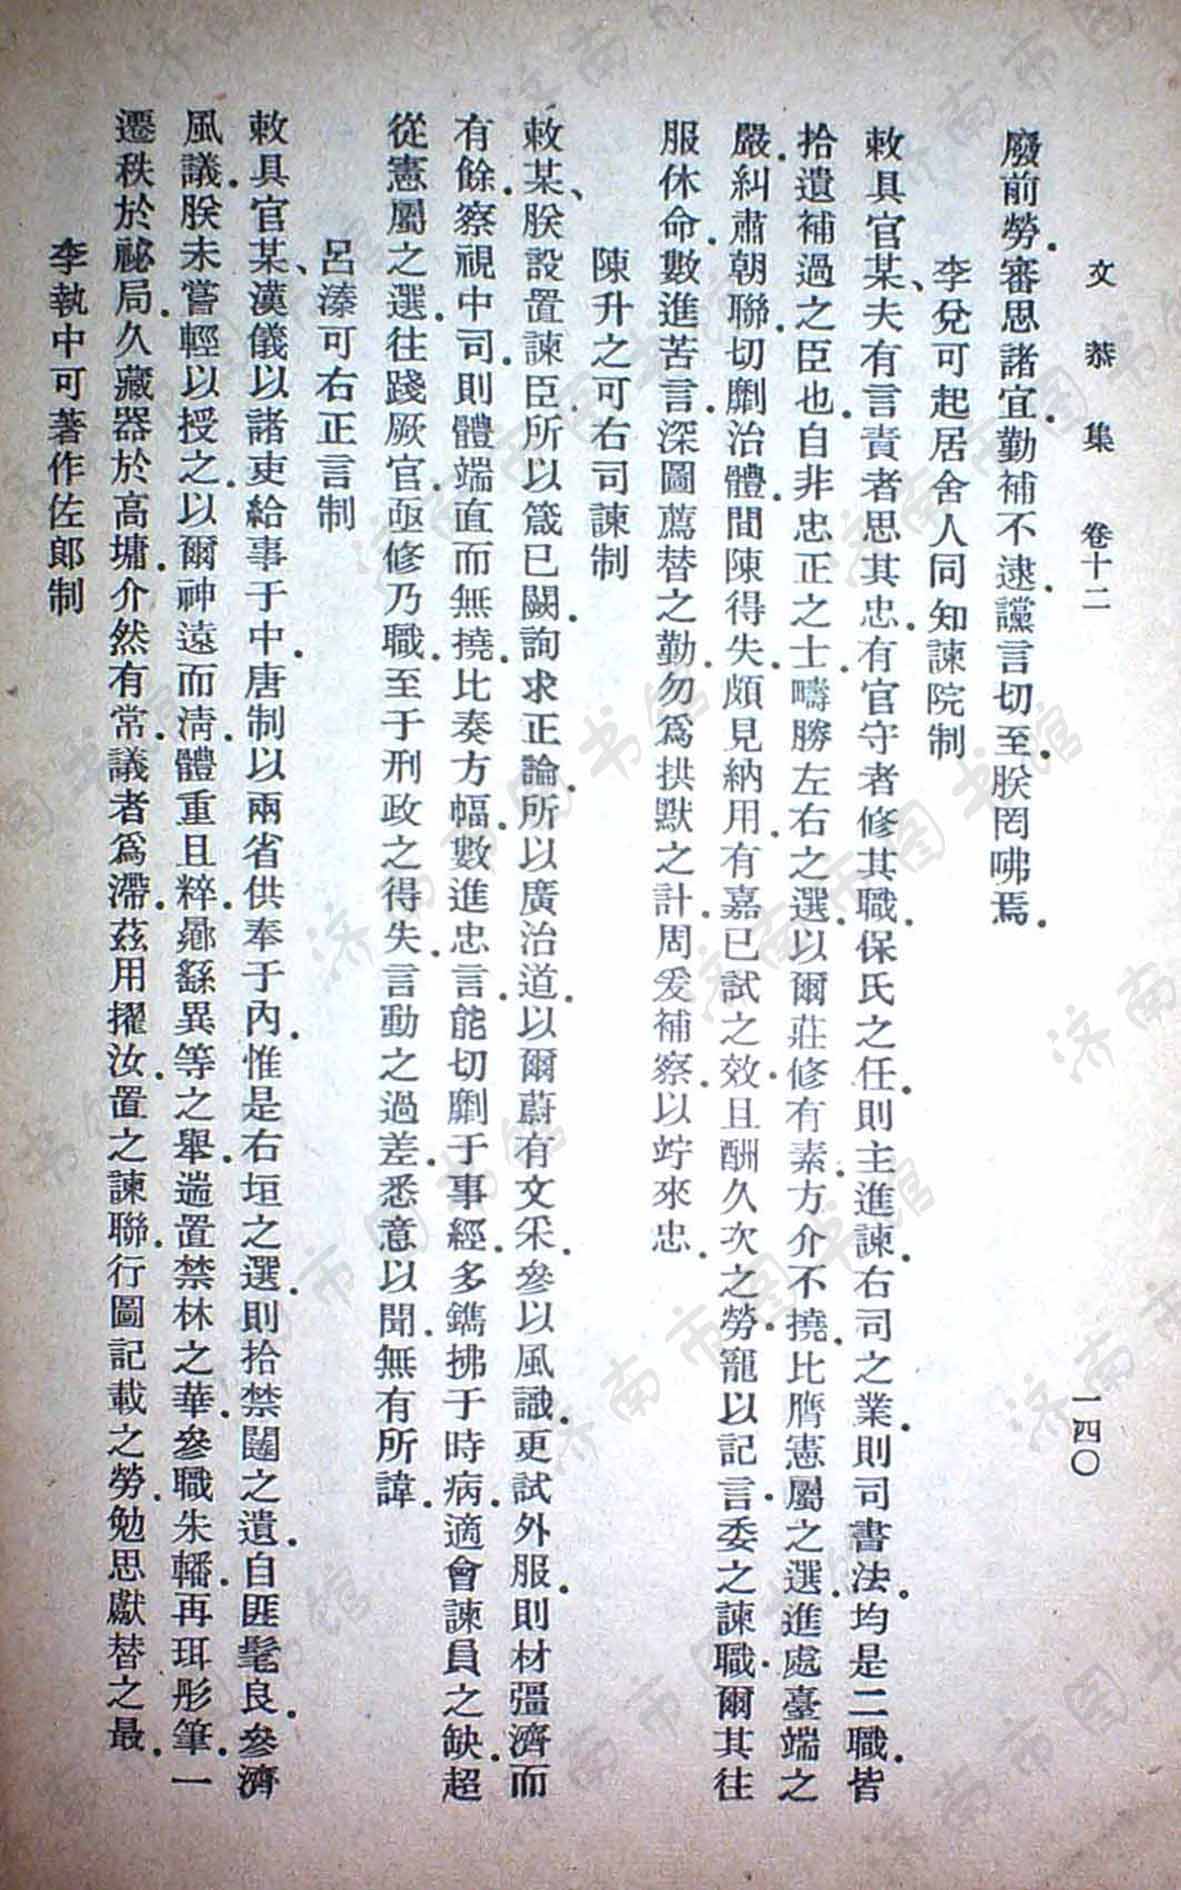 文恭集 卷十二 一四〇
廢前勞.審思諸宜.勤補不逮.讜言切至.朕罔咈焉.
李兌可起居舍人同知諫院制
敕具官某、夫有言責者思其忠.有官守者修其職.保氏之任.則主進諫.右司之業.則司書法.均是二職.皆
拾遺補過之臣也.自非忠正之士.疇勝左右之選.以爾莊修有素.方介不撓.比膺憲屬之選.進處臺端之
嚴.糾肅朝聯.切劘治體.間陳得失.頗見納用.有嘉已試之效.且酬久次之勞.寵以記言.委之諫職.爾其往
服休命.數進苦言.深圖薦替之勤.勿爲拱默之計.周爰補察.以竚來忠.
陳升之可右司諫制
敕某、朕設置諫臣.所以箴已闕.詢求正論.所以廣治道.以爾蔚有文采.參以風識.更試外服.則材彊濟而
有餘.察視中司.則體端直而無撓.比奏方幅.數進忠言.能切劘于事經.多鐫拂于時病.適會諫員之缺.超
從憲屬之選.往踐厥官.亟修乃職.至于刑政之得失.言動之過差.悉意以聞.無有所諱.
呂溱可右正言制
敕具官某、漢儀以諸吏給事于中.唐制以兩省供奉于內.惟是右垣之選.則拾禁闥之遺.自匪髦良.參濟
風議.朕未嘗輕以授之.以爾神遠而清.體重且粹.曏繇異等之舉.遄置禁林之華.參職朱轓.再珥彤筆.一
遷秩於祕局.久藏器於高墉.介然有常.議者爲滯.茲用擢汝.置之諫聯.行圖記載之勞.勉思獻替之最.
李執中可著作佐郎制
济南市图书馆